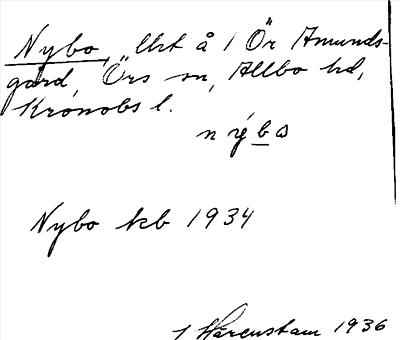 Nybo, lht å 1 Ör Amunds-
gård, Örs sn, Allbo hd,
Kronobs l.
nýba
Nybo kb 1934
1 Härenstam 1936